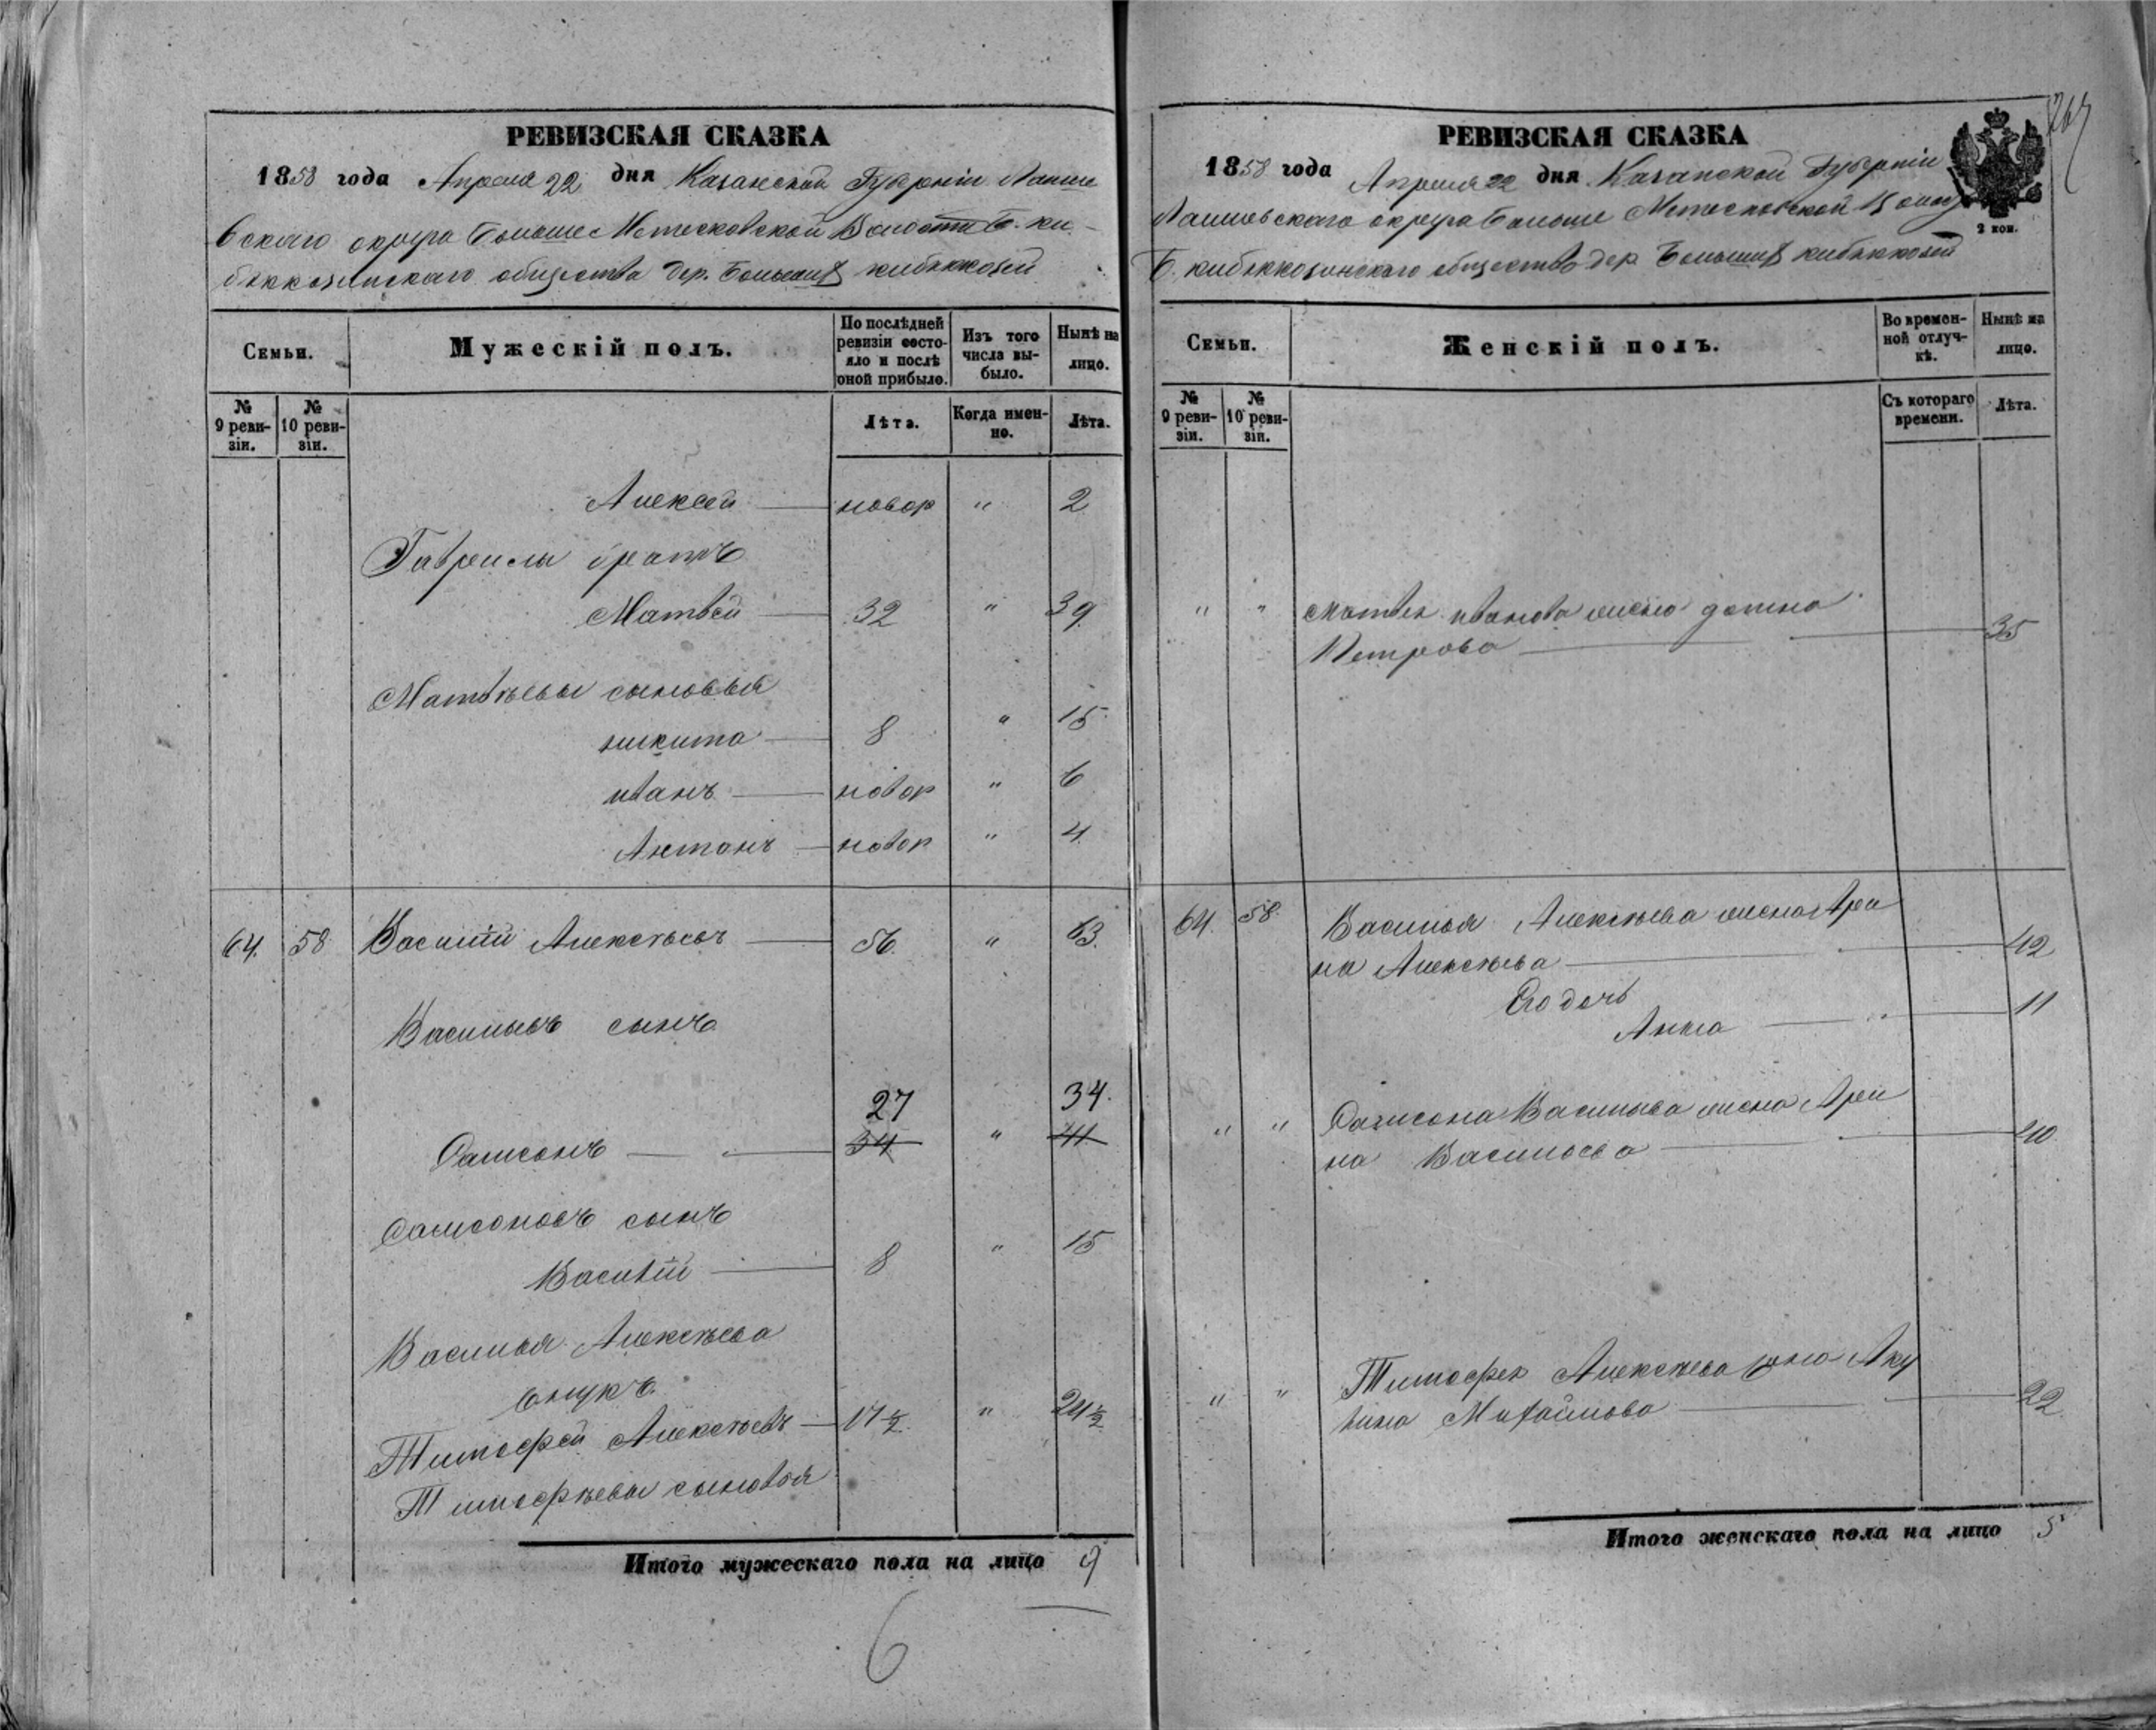 РЕВИЗСКАЯ СКАЗКА
1858 года Апреля 22 дня Казанской Губерніи Лаише
вскаго округа Больше Метесковской Волости Б. ки-
бяккозинскаго общества дер. Большихъ кибяккозей
Семьи.
Мужескій полъ.
По послѣдней ревизіи состо-яло и послѣ оной прибыло.
Изъ того числа вы-было.
Нынѣ на лицо.
№ 9 реви-зіи.
№ 10 реви-зіи.
Лѣта.
Когда имен-но.
Лѣта.
Алексей новор " 2
Гаврилы братъ
Матвей 32 " 39
Матвѣевы сыновья
никита 8 " 15
иванъ новор " 6
Антонъ новор " 4
64. 58 Василій Алексѣевъ 56. " 63.
Васильевъ сынъ
27 34.
Самсонъ 34 " 41
Самсоновъ сынъ
Василій 8 " 15
Василья Алексѣева
внукъ
Тимофей Алексѣевъ 17 ½ " 24 ½
Тимофѣевы сыновья
Итого мужескаго пола на лицо 9
6
267
РЕВИЗСКАЯ СКАЗКА
1858 года Апреля 22 дня Казанской Губерніи
Лаишевскаго округа Больше Метесковской Волос
Б. кибяккозинскаго общества дер. Большихъ кибяккозей
2 коп.
Семьи.
Женскій полъ.
Во времен-ной отлуч-кѣ.
Нынѣ на лицо.
№ 9 реви-зіи.
№ 10 реви-зіи.
Съ котораго времени.
Лѣта.
" " Матвея иванова жена домна
Петрова 35
64. 58. Василья Алексѣева жена Ари
на Алексѣева 42
Его дочь
Анна 11
" " Самсона Васильева жена Ари
на Васильева 40
" " Тимофея Алексѣева жена Аку
лина Михайлова 22
Итого женскаго пола на лицо 5